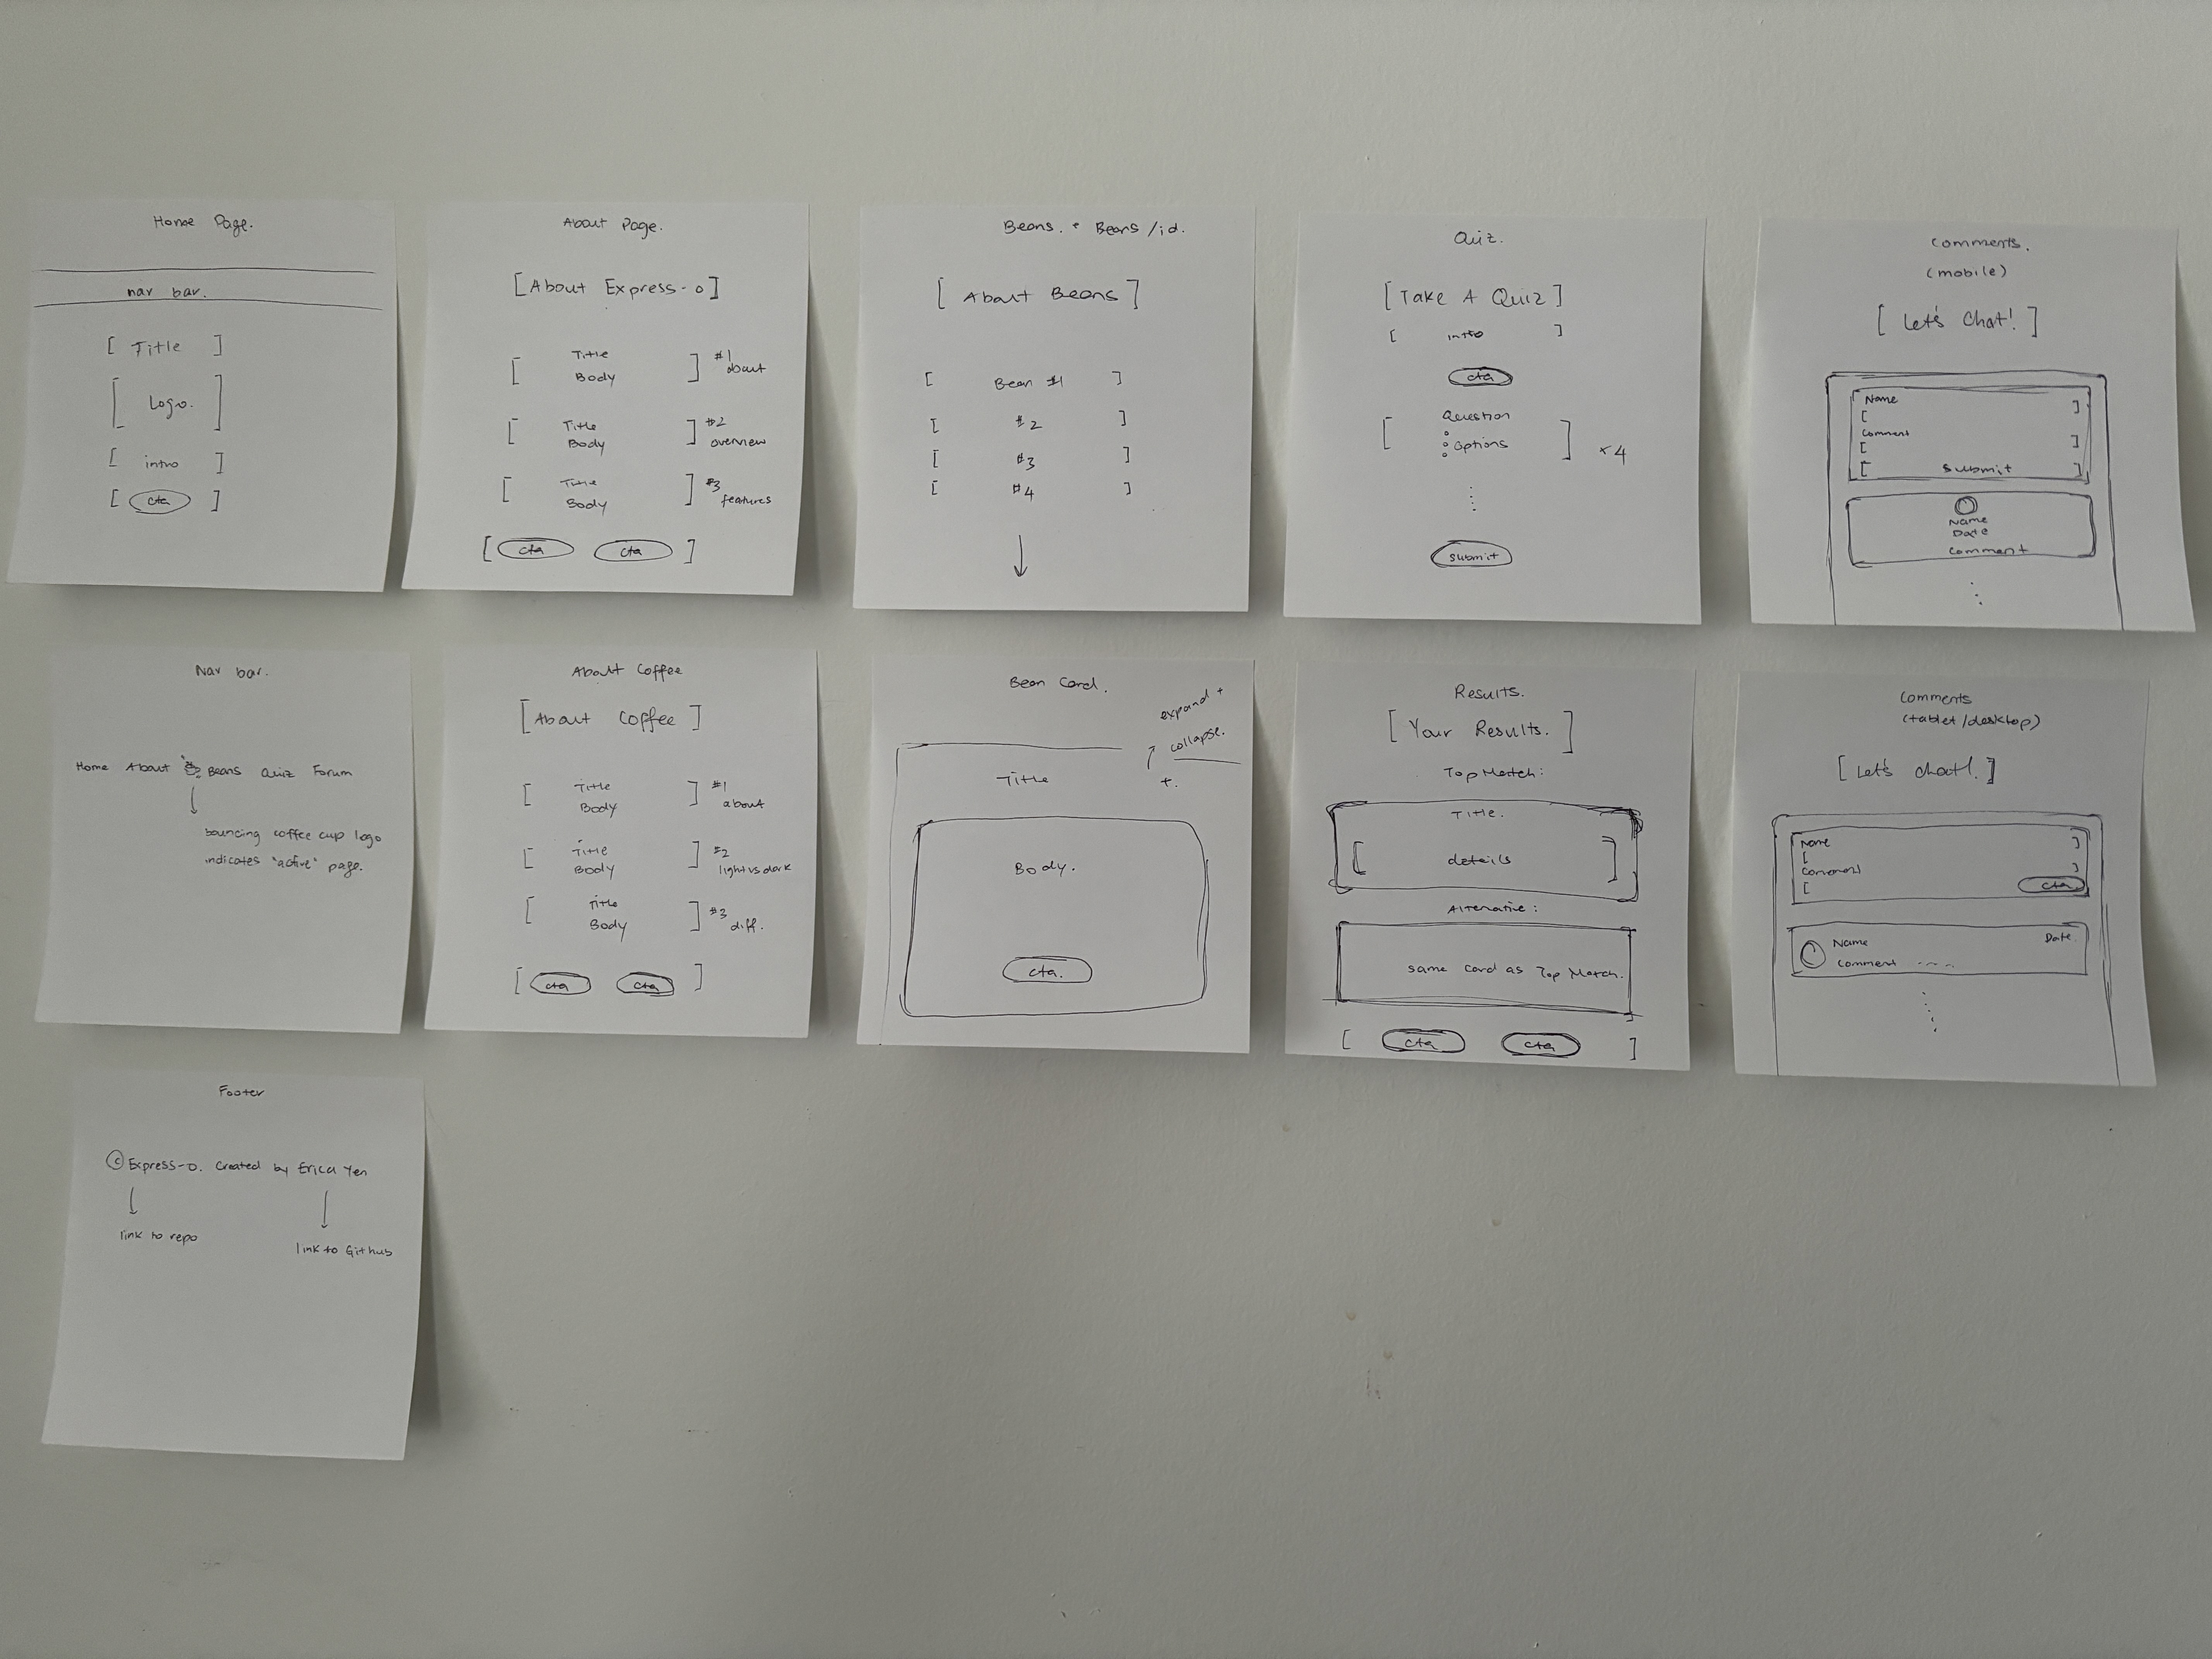 Home Page.
nav bar.
[ Title ]
[ Logo. ]
[ intro ]
[ cta ]
About Page.
[About Express-o]
[ Title
Body ] #1
about
[ Title
Body ] #2
overview
[ Title
Body ] #3
features
[ cta cta ]
Beans. + Beans/id.
[ About Beans ]
[ Bean #1 ]
[ #2 ]
[ #3 ]
[ #4 ]
Quiz.
[Take A Quiz]
[ intro ]
cta
[ Question
Options ] x4
submit
Comments.
(mobile)
[ Let's Chat! ]
Name
[ ]
Comment
[ ]
[ Submit ]
Name
Date
Comment
Nav bar.
Home About Beans Quiz Forum
bouncing coffee cup logo
indicates "active" page.
About Coffee
[About Coffee]
[ Title
Body ] #1
about
[ Title
Body ] #2
light vs dark
[ Title
Body ] #3
diff.
[ cta cta ]
Bean Card.
expand +
collapse.
Title +.
Body.
cta.
Results.
[ Your Results. ]
Top Match:
Title.
[ details ]
Alternative:
same card as Top Match.
[ cta cta ]
Comments
(tablet/desktop)
[ Let's chat!. ]
Name
[ ]
Comment
[ ]
cta
Name Date.
Comment
Footer
© Express-o. Created by Erica Yen
link to repo
link to Github